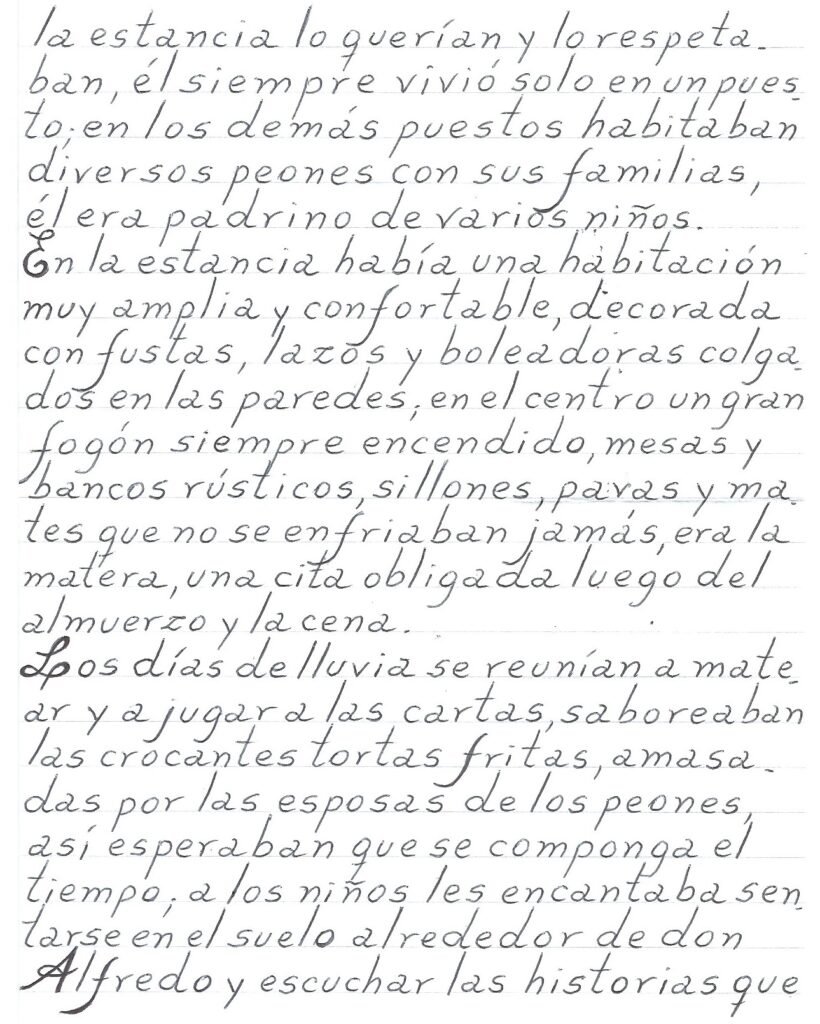 la estancia lo querían y lo respeta-
ban, él siempre vivió solo en un pues-
to; en los demás puestos habitaban
diversos peones con sus familias,
él era padrino de varios niños.
En la estancia había una habitación
muy amplia y confortable, decorada
con fustas, lazos y boleadoras colga-
dos en las paredes; en el centro un gran
fogón siempre encendido, mesas y
bancos rústicos, sillones, pavas y ma-
tes que no se enfriaban jamás, era la
matera, una cita obligada luego del
almuerzo y la cena.
Los días de lluvia se reunían a mate-
ar y a jugar a las cartas, saboreaban
las crocantes tortas fritas, amasa-
das por las esposas de los peones,
así esperaban que se componga el
tiempo; a los niños les encantaba sen-
tarse en el suelo alrededor de don
Alfredo y escuchar las historias que